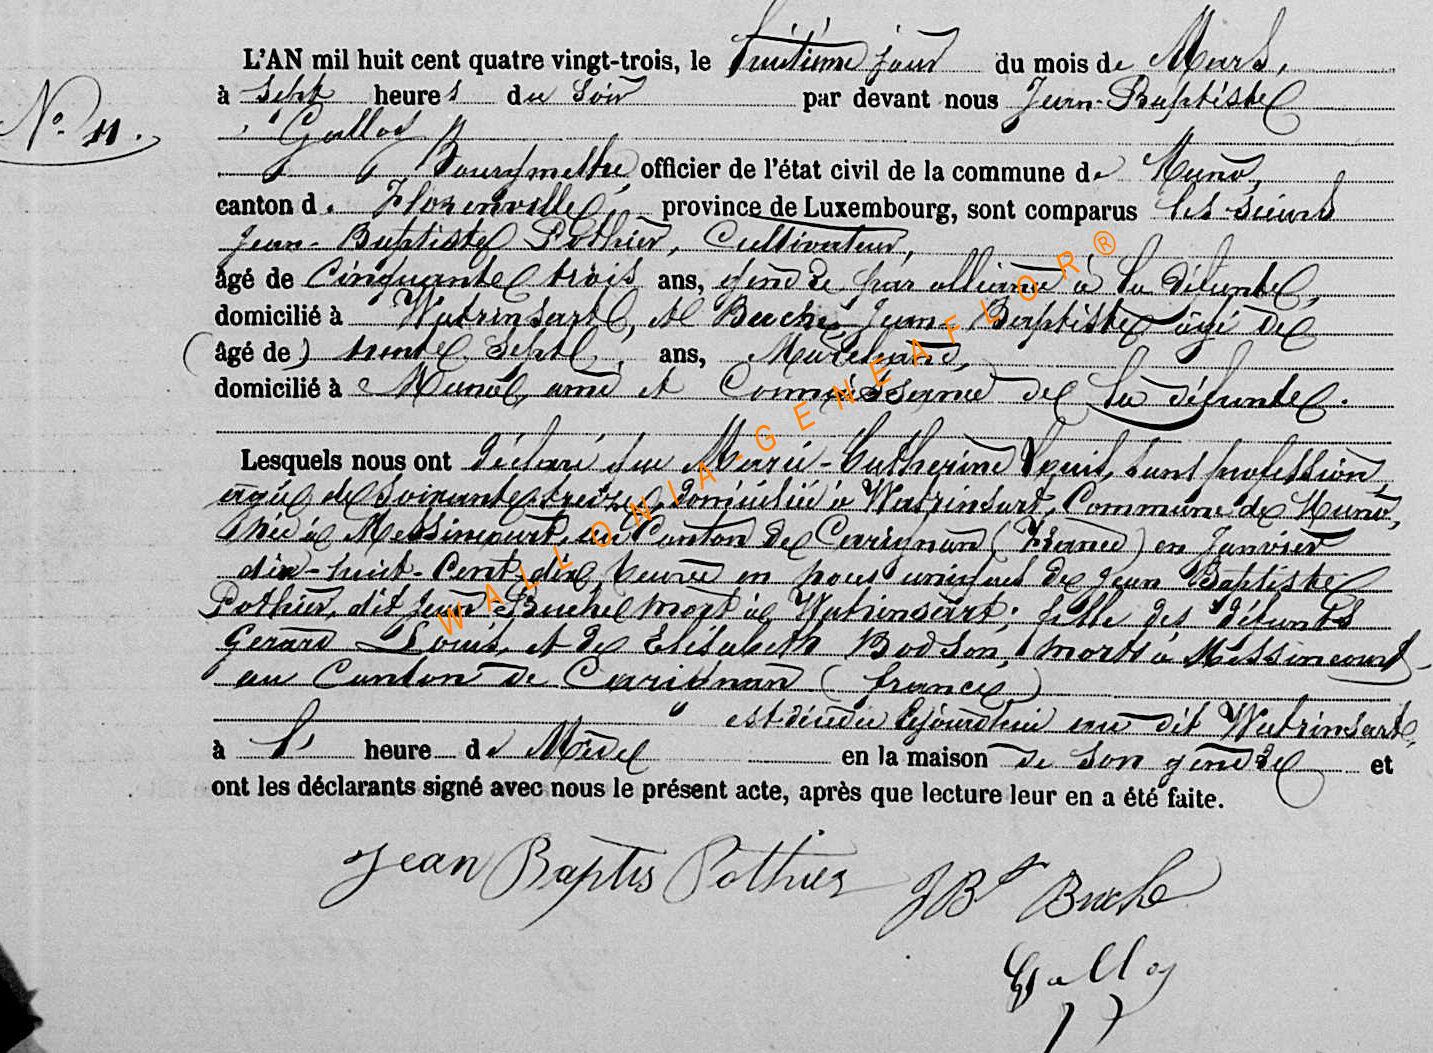 L'AN mil huit cent quatre vingt-trois, le huitième jour du mois de Mars,
à sept heures du soir par devant nous Jean-Baptiste
N° 11. Galloy
Bourgmestre, officier de l'état civil de la commune de Muno,
canton de Florenville, province de Luxembourg, sont comparus les sieurs
Jean-Baptiste Pothier, Cultivateur,
âgé de Cinquante trois ans, gendre par alliance à la défunte,
domicilié à Watrinsart, et Buche, Jean-Baptiste âgé de
(âgé de) trente sept, ans, Marchand,
domicilié à Muno, ami et Connaissance de la défunte.
Lesquels nous ont déclaré que Marie-Catherine Louis, sans profession,
agée de soixante treize, domiciliée à Watrinsart, Commune de Muno,
née à Messincourt, au Canton de Carignan (France) en Janvier
dix-huit-cent-dix, veuve en noces uniques de Jean Baptiste
Pothier, dit Jean Buche mort à Watrinsart; fille des défunts
Gerard Louis, et de Elisabeth Bodson, morts à Messincourt
au Canton de Carignan (france)
est décédée cejourdhui au dit Watrinsart,
à l' heure de Midi en la maison de son gendre et
ont les déclarants signé avec nous le présent acte, après que lecture leur en a été faite.
Jean Baptis Pothier JBt Buche
Galloy
WALLONIA-GENEAFLOR®